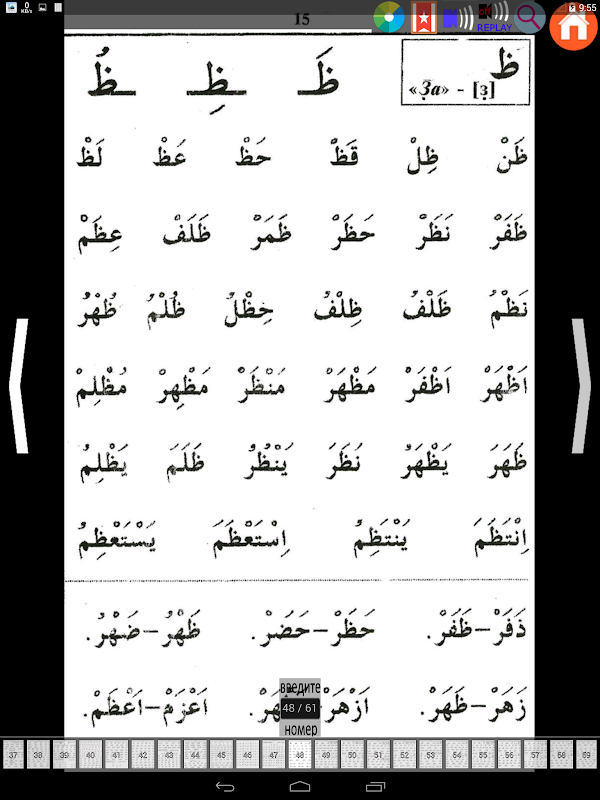 0
KB/s
9:55
15
REPLAY
ظ
«З̣а» - [з̣]
ظَ ظِ ظُ
ظَنْ ظِلْ قَظْ حَظْ عَظْ لَظْ
ظَفَرْ نَظَرْ حَظَرْ ظَمَرْ ظَلَفْ عِظَمْ
نَظْمُ ظَلْفُ ظِلْفُ حِظْلُ ظُلْمُ ظُهْرُ
اَظْهَرْ اَظْفَرْ مَظْهَرْ مَنْظَرْ مَظْهِرْ مُظْلِمْ
ظَهَرَ يَظْهَرُ نَظَرَ يَنْظُرُ ظَلَمَ يَظْلِمُ
اِنْتَظَمَ يَنْتَظِمُ اِسْتَعْظَمَ يَسْتَعْظِمُ
ذَفَرْ–ظَفَرْ. حَظَرْ–حَضَرْ. ظَهْرُ–ضَهْرُ.
زَهَرْ–ظَهَرْ. اَزْهَرْ– اَعْزَمْ–اَعْظَمْ.
введите
48 / 61
номер
37 38 39 40 41 42 43 44 45 46 47 48 49 50 51 52 53 54 55 56 57 58 59